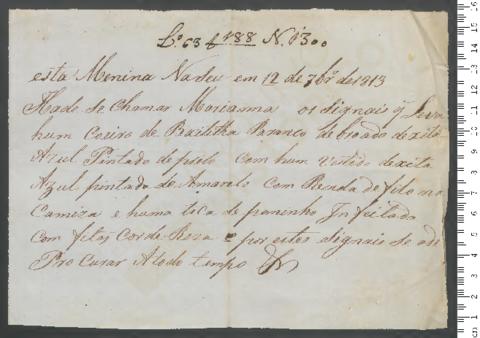 Lº 63 f 188 N. 1300
esta Menina Nasceu em 12 de 7bro de 1813
Hade se Chamar Marianna os signais q Leva
hum Coeiro de Baitilha Branco de broado de xita
Azul Pintado de preto Com hum Vestido de xita
Azul pintado de Amarelo Com Renda de filo na
Camiza e huma toca de paninho Infeitada
Com fitas Cor de Roza e por estes signais se ade
Pro Curar A todo tempo